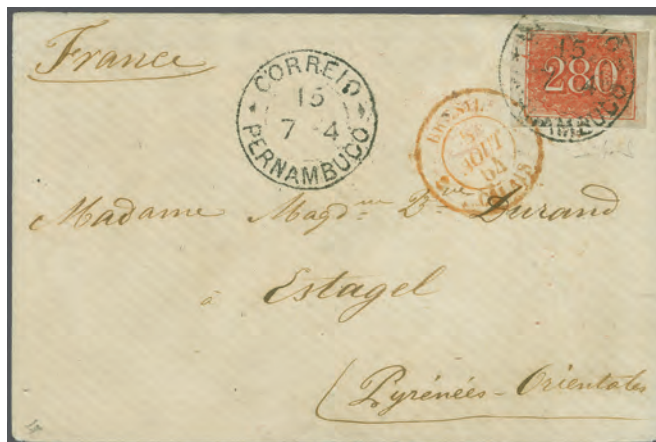 France
CORREIO
15
7 4
PERNAMBUCO
15
280
AOUT
64
CALAIS
Madame Magd.ne B. Durand
à Estagel
(Pyrénées-Orientales